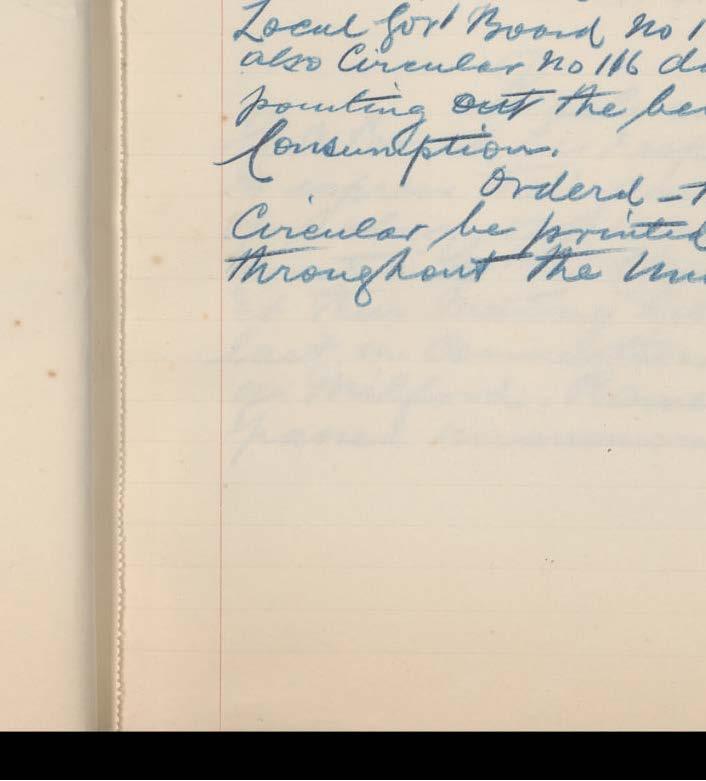 Local Govt Board No 1
also Circular No 116 d
pointing out the be
Consumption.
Orderd - T
Circular be printed
throughout the Un